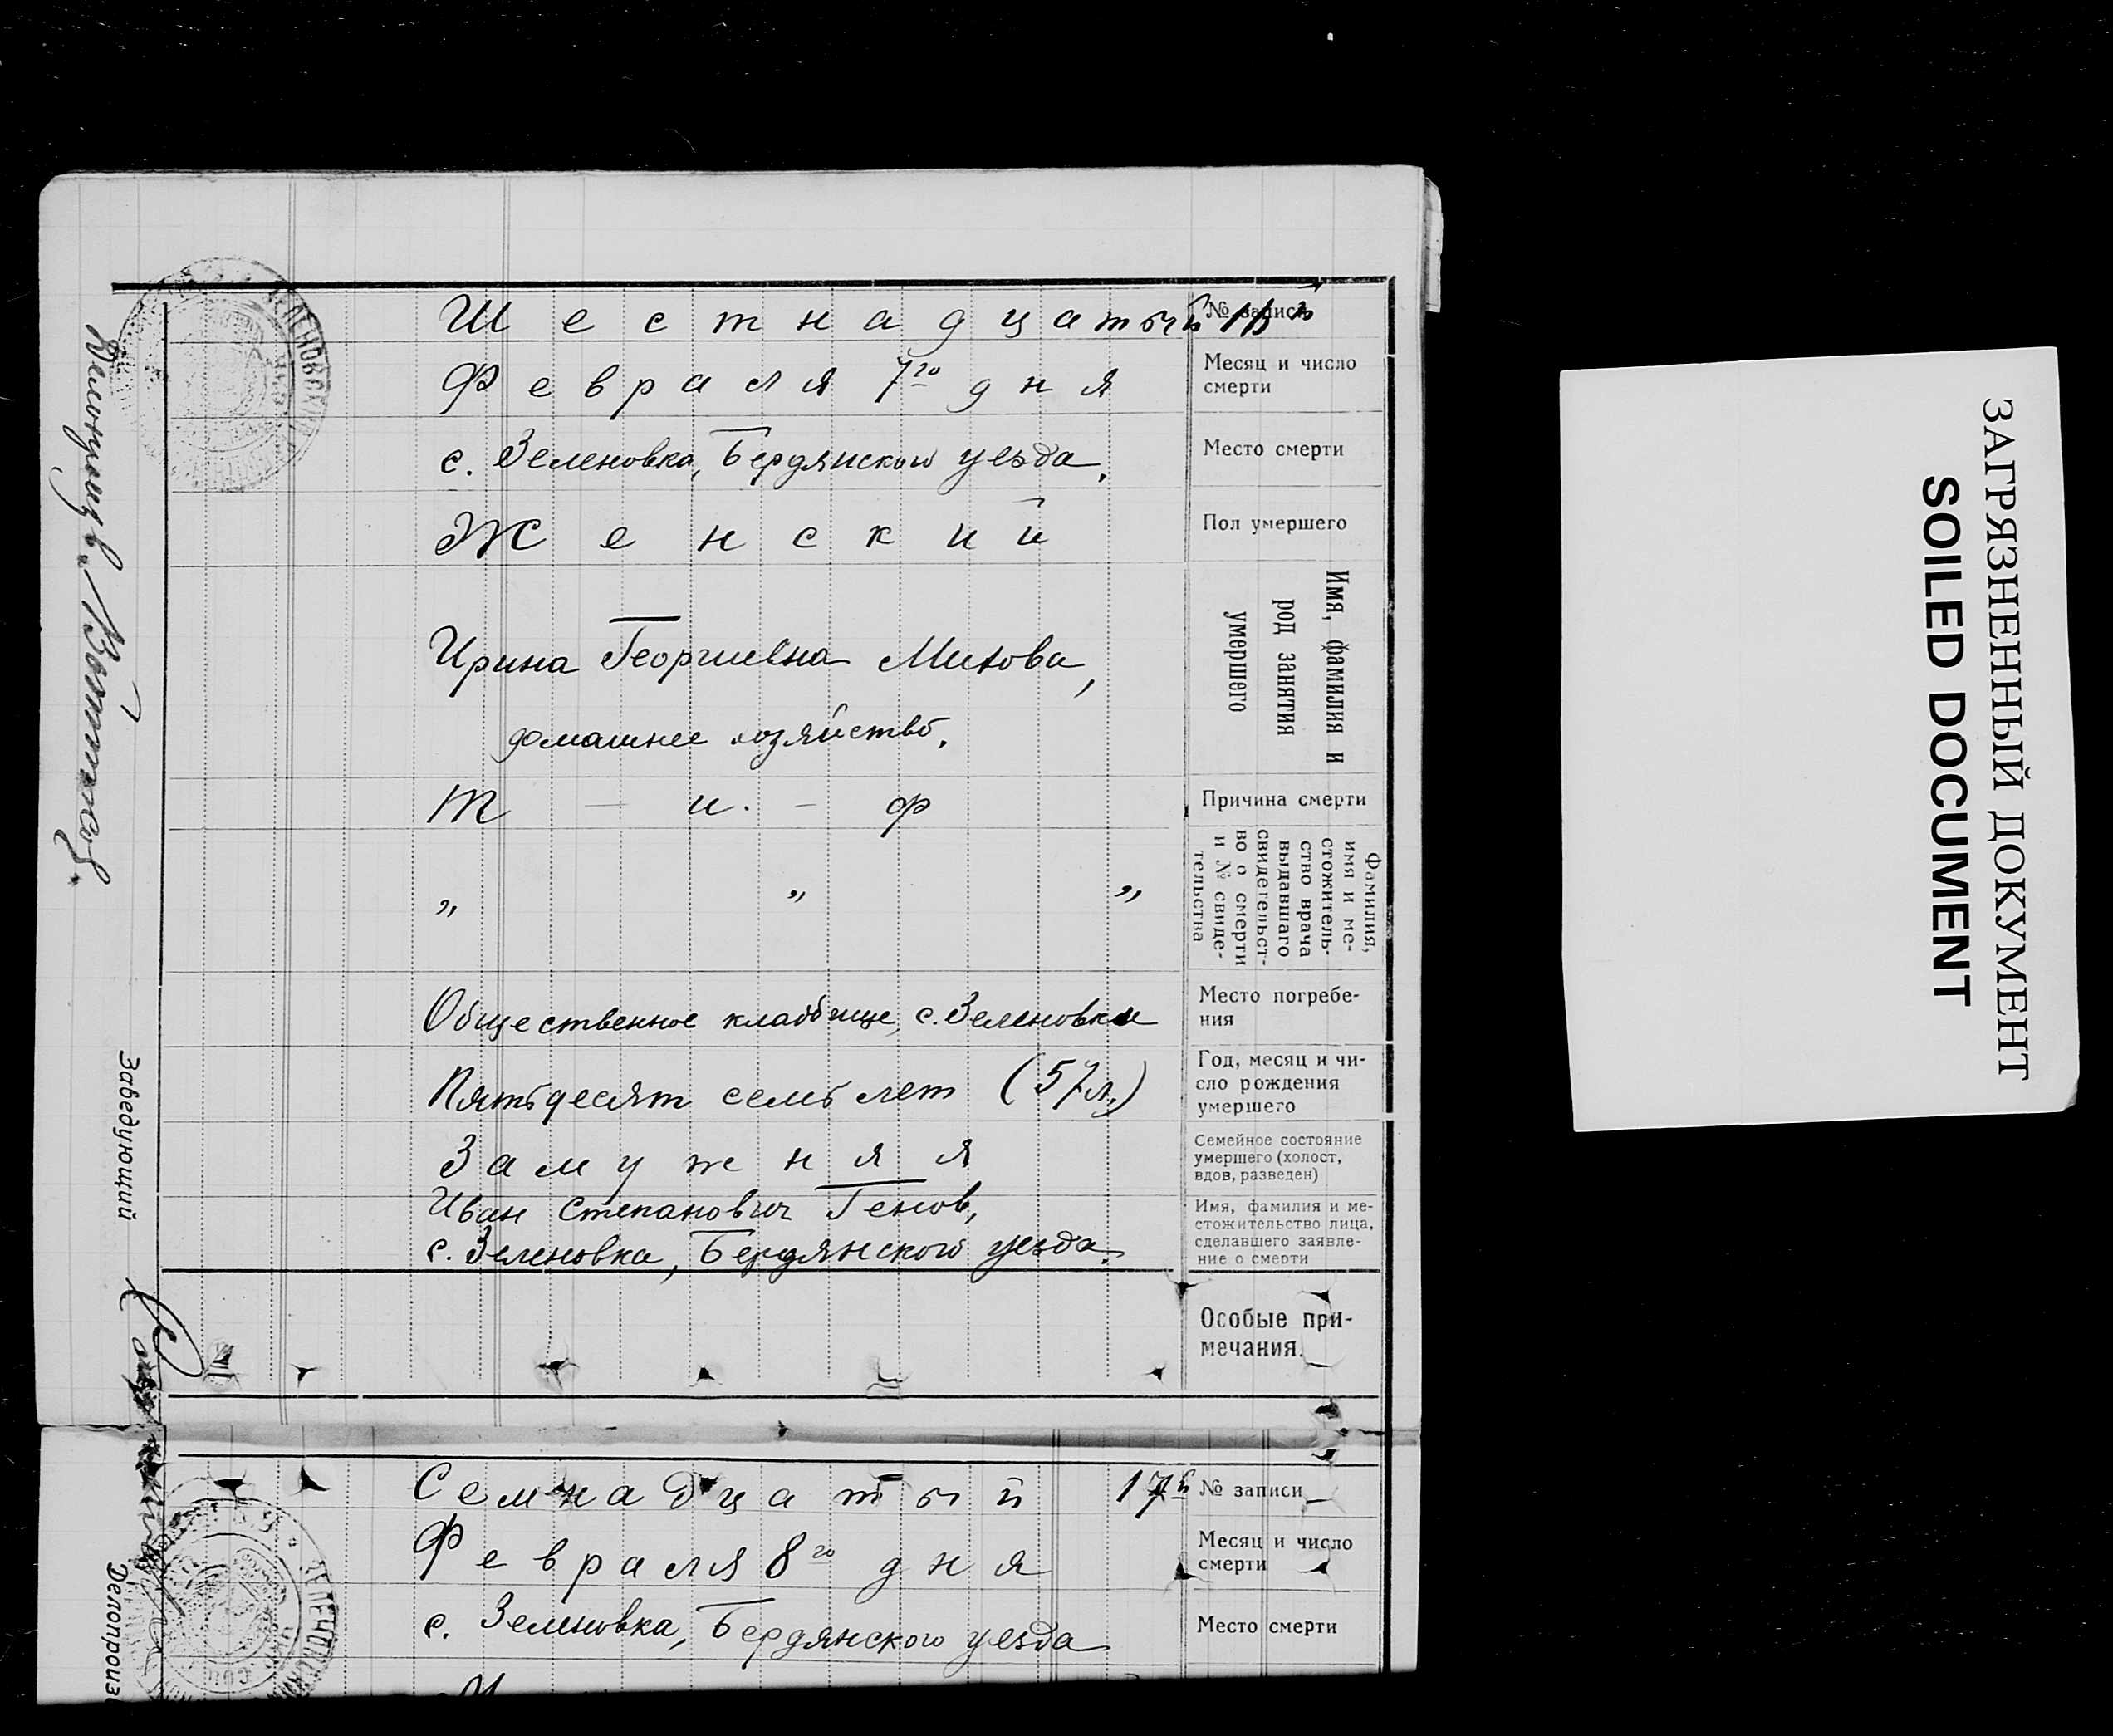 Шестнадцатый 16й
№ записи
Февраля 7го дня
Месяц и число
смерти
с. Зеленовка, Бердянского уезда.
Место смерти
Женский
Пол умершего
Ирина Георгиевна Митова,
домашнее хозяйство.
Имя, фамилия и
род занятия
умершего
Т — и. — ф
Причина смерти
„ „ „
Фамилия,
имя и ме-
стожитель-
ство врача
выдавшего
свидетельст-
во о смерти
и № свиде-
тельства
Общественное кладбище, с. Зеленовки
Место погребе-
ния
Пятьдесят семь лет (57 л.)
Год, месяц и чи-
сло рождения
умершего
Замужняя
Семейное состояние
умершего (холост,
вдов, разведен)
Иван Степанович Генов,
с. Зеленовка, Бердянского уезда.
Имя, фамилия и ме-
стожительство лица,
сделавшего заявле-
ние о смерти
Особые при-
мечания.
Заведующий
Семнадцатый 17й
№ записи
Февраля 8го дня
Месяц и число
смерти
с. Зеленовка, Бердянского уезда
Место смерти
Делопроизв
ЗАГРЯЗНЕННЫЙ ДОКУМЕНТ
SOILED DOCUMENT